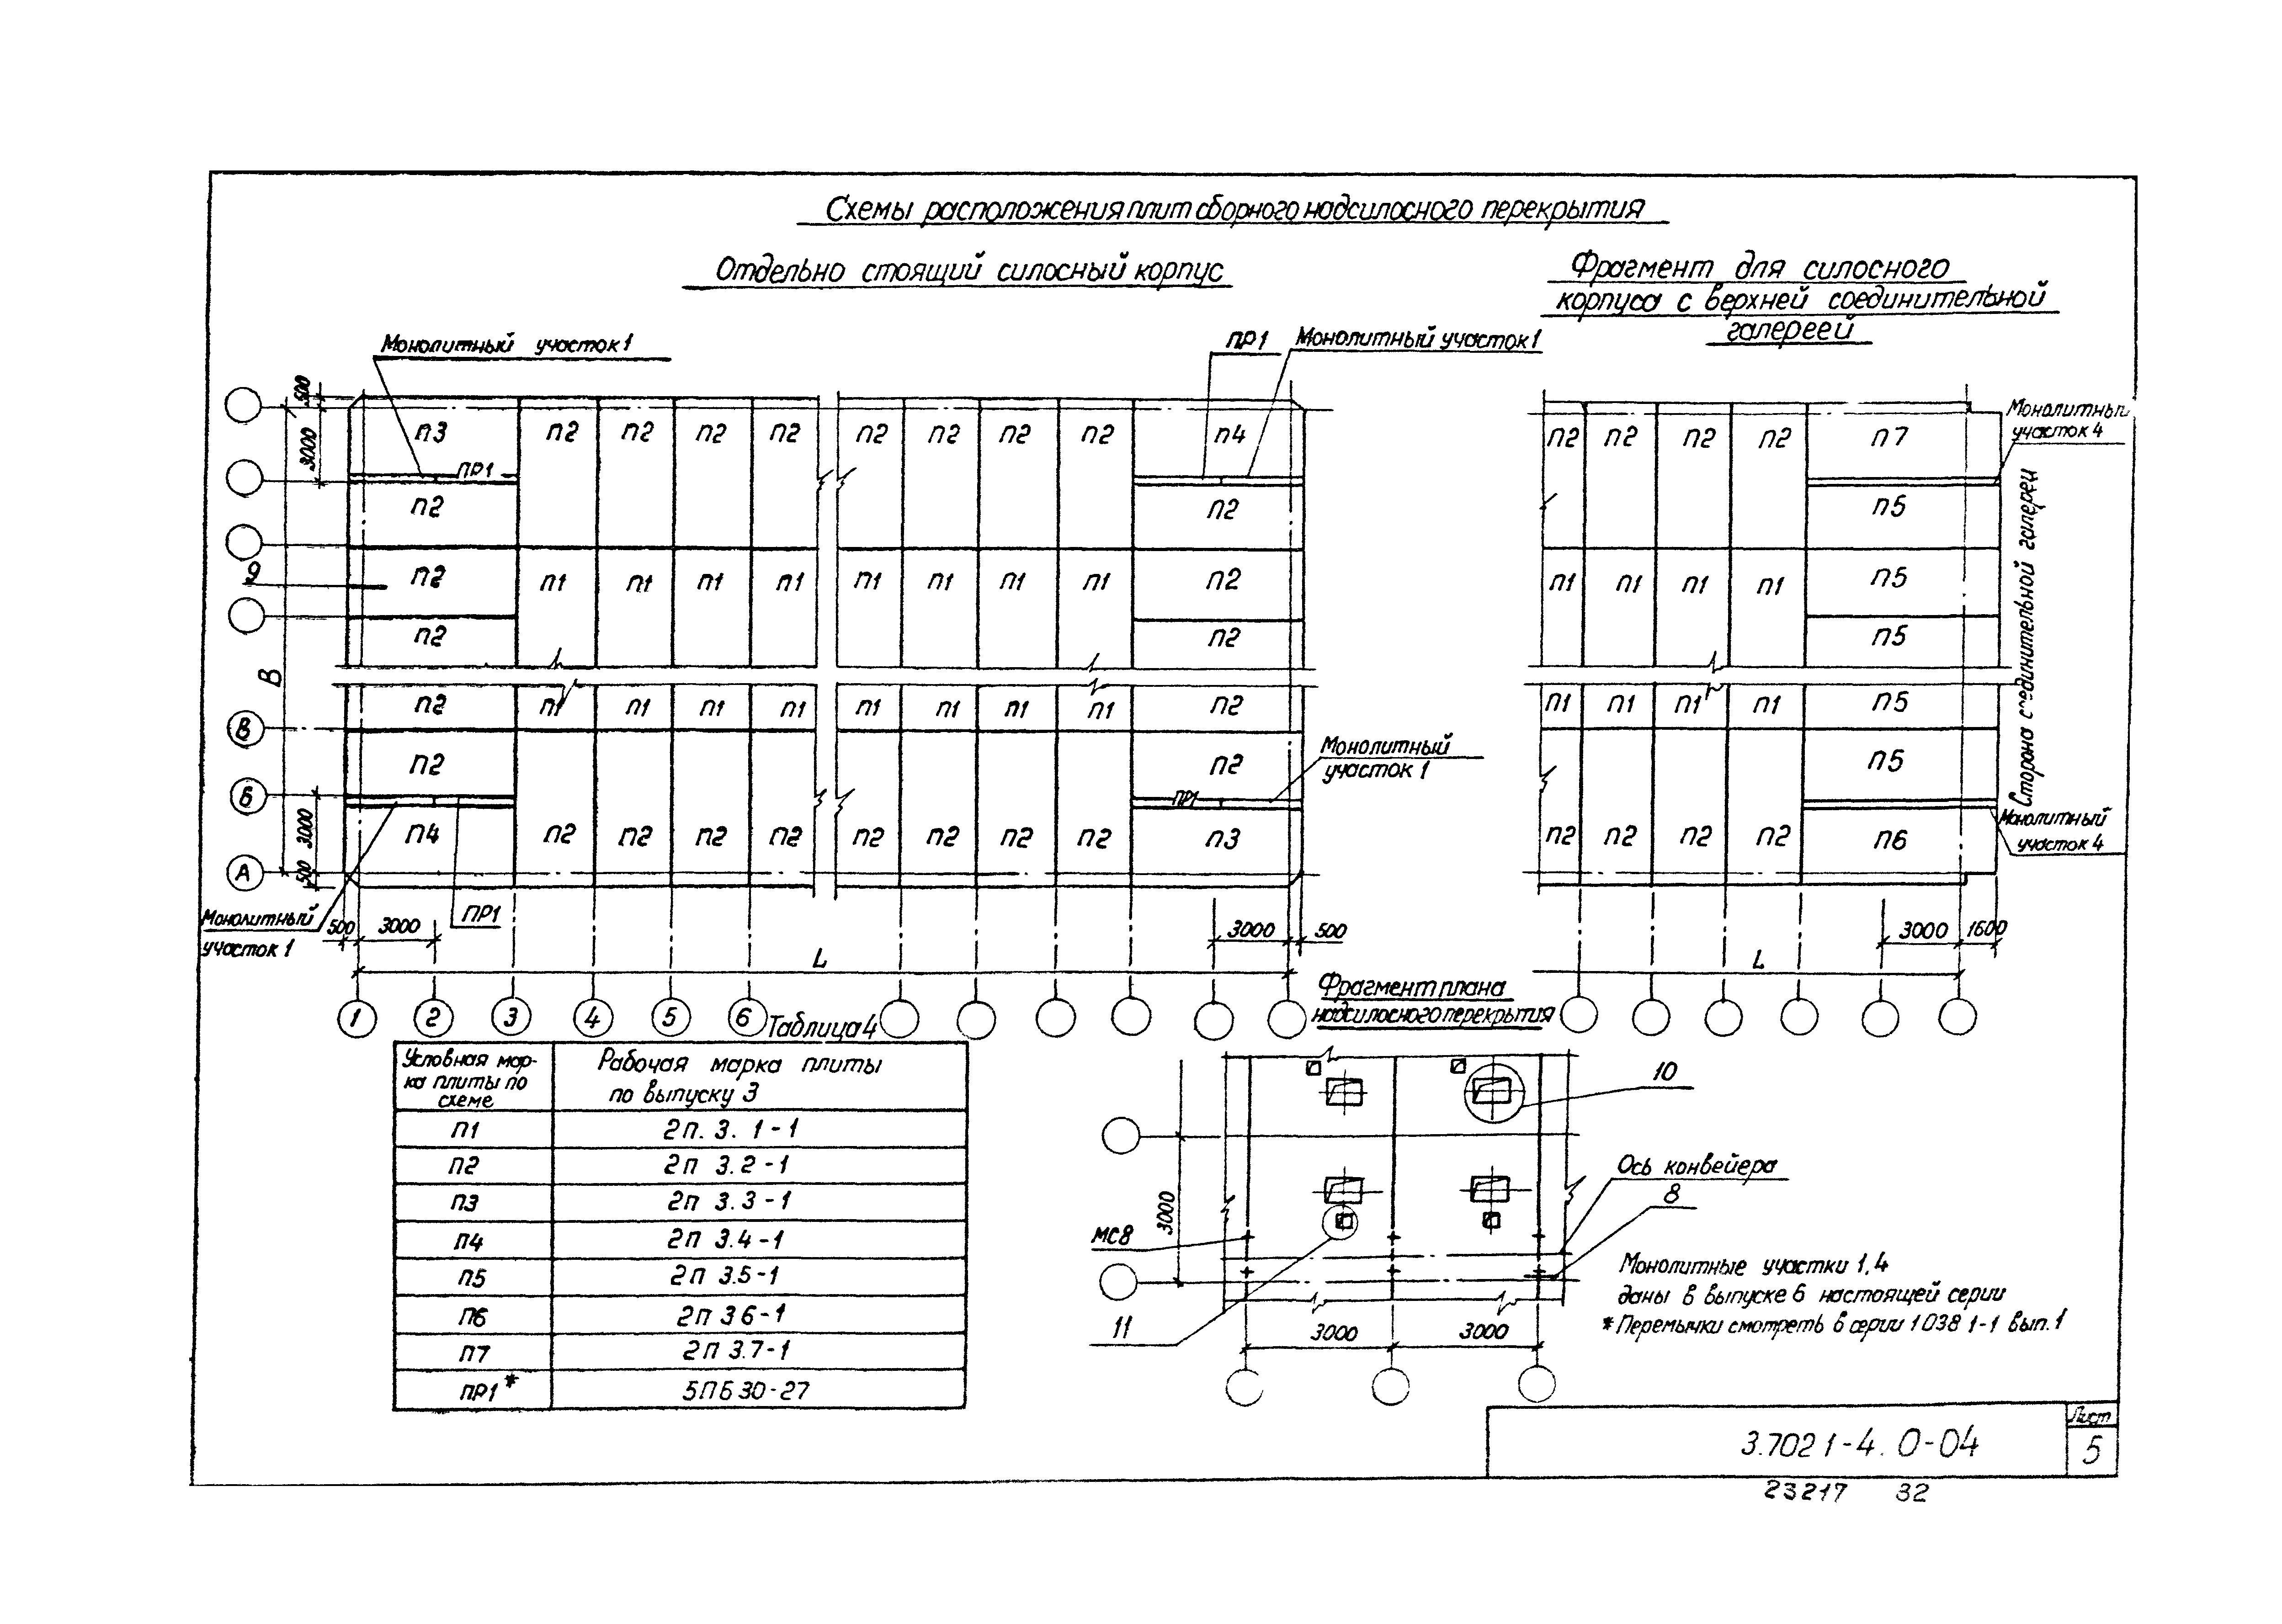 Схемы расположения плит сборного надсилосного перекрытия
Отдельно стоящий силосный корпус
Фрагмент для силосного
корпуса с верхней соединительной
галереей
Монолитный участок 1
ПР1 Монолитный участок 1
Монолитный
участок 4
500
3000
П3 П2 П2 П2 П2 П2 П2 П2 П2 П4
П2 П2 П2 П2 П7
ПР1
П2 П2
П5
9
П2 П1 П1 П1 П1 П1 П1 П1 П1 П2
П1 П1 П1 П1 П5
П2 П2
П5
Сторона соединительной галереи
В
П2 П1 П1 П1 П1 П1 П1 П1 П1 П2
П1 П1 П1 П1 П5
В
П2 П2
П5
Монолитный
участок 1
Б
ПР1
3000
П4 П2 П2 П2 П2 П2 П2 П2 П2 П3
П2 П2 П2 П2 П6
Монолитный
участок 4
А
500
Монолитный
участок 1
ПР1
500 3000
3000 500
3000 1600
L
L
1 2 3 4 5 6
Таблица 4
Условная мар-
ка плиты по
схеме
Рабочая марка плиты
по выпуску 3
П1 2П. 3. 1-1
П2 2П 3.2-1
П3 2П 3.3-1
П4 2П 3.4-1
П5 2П 3.5-1
П6 2П 3 6-1
П7 2П 3.7-1
ПР1* 5ПБ 30-27
Фрагмент плана
надсилосного перекрытия
10
Ось конвейера
8
МС8
3000
11
3000 3000
Монолитные участки 1,4
даны в выпуске 6 настоящей серии
* Перемычки смотреть в серии 1 038 1-1 вып. 1
3.702 1-4. 0-04
Лист
5
23217 32